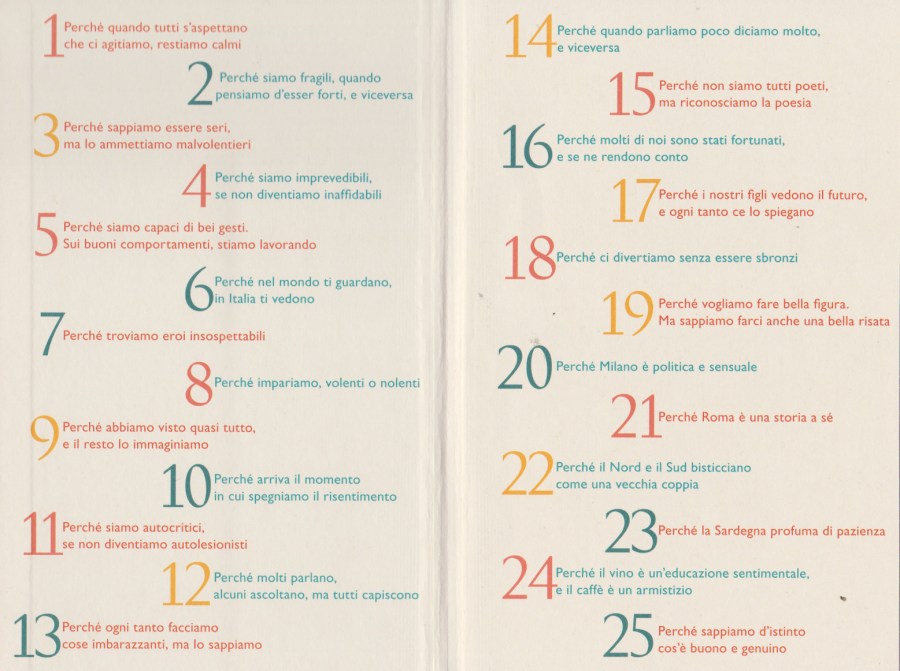 1 Perché quando tutti s'aspettano
che ci agitiamo, restiamo calmi
2 Perché siamo fragili, quando
pensiamo d'esser forti, e viceversa
3 Perché sappiamo essere seri,
ma lo ammettiamo malvolentieri
4 Perché siamo imprevedibili,
se non diventiamo inaffidabili
5 Perché siamo capaci di bei gesti.
Sui buoni comportamenti, stiamo lavorando
6 Perché nel mondo ti guardano,
in Italia ti vedono
7 Perché troviamo eroi insospettabili
8 Perché impariamo, volenti o nolenti
9 Perché abbiamo visto quasi tutto,
e il resto lo immaginiamo
10 Perché arriva il momento
in cui spegniamo il risentimento
11 Perché siamo autocritici,
se non diventiamo autolesionisti
12 Perché molti parlano,
alcuni ascoltano, ma tutti capiscono
13 Perché ogni tanto facciamo
cose imbarazzanti, ma lo sappiamo
14 Perché quando parliamo poco diciamo molto,
e viceversa
15 Perché non siamo tutti poeti,
ma riconosciamo la poesia
16 Perché molti di noi sono stati fortunati,
e se ne rendono conto
17 Perché i nostri figli vedono il futuro,
e ogni tanto ce lo spiegano
18 Perché ci divertiamo senza essere sbronzi
19 Perché vogliamo fare bella figura.
Ma sappiamo farci anche una bella risata
20 Perché Milano è politica e sensuale
21 Perché Roma è una storia a sé
22 Perché il Nord e il Sud bisticciano
come una vecchia coppia
23 Perché la Sardegna profuma di pazienza
24 Perché il vino è un'educazione sentimentale,
e il caffè è un armistizio
25 Perché sappiamo d'istinto
cos'è buono e genuino